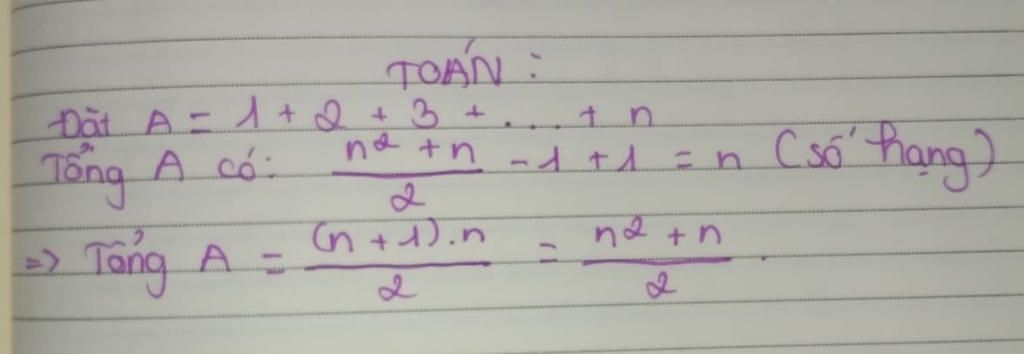 TOÁN :
Đặt A = 1 + 2 + 3 + ... + n
Tổng A có: (n² + n)/2 - 1 + 1 = n (số hạng)
=> Tổng A = ((n + 1).n)/2 = (n² + n)/2.